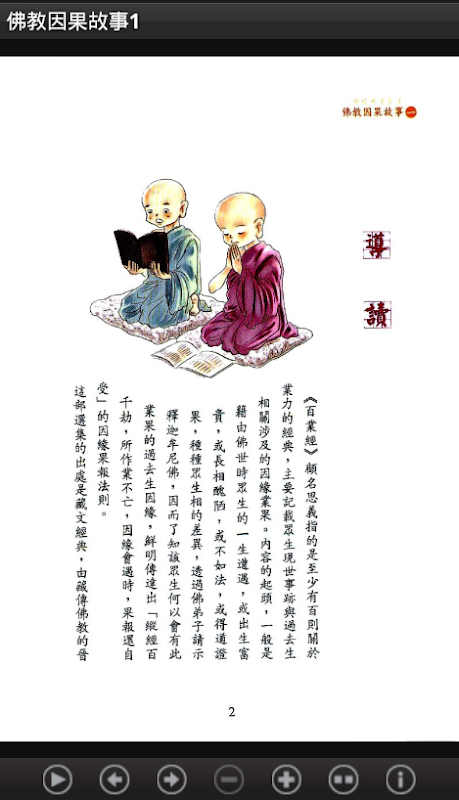 佛教因果故事1
佛教因果故事一
導讀
《百業經》顧名思義指的是至少有百則關於
業力的經典，主要記載眾生現世事跡與過去生
相關涉及的因緣業果。內容的起頭，一般是
藉由佛世時眾生的一生遭遇，或出生富
貴，或長相醜陋，或不如法，或得道證
果，種種眾生相的差異，透過佛弟子請示
釋迦牟尼佛，因而了知該眾生何以會有此
業果的過去生因緣，鮮明傳達出「縱經百
千劫，所作業不亡，因緣會遇時，果報還自
受」的因緣果報法則。
這部選集的出處是藏文經典，由藏傳佛教的晉
2